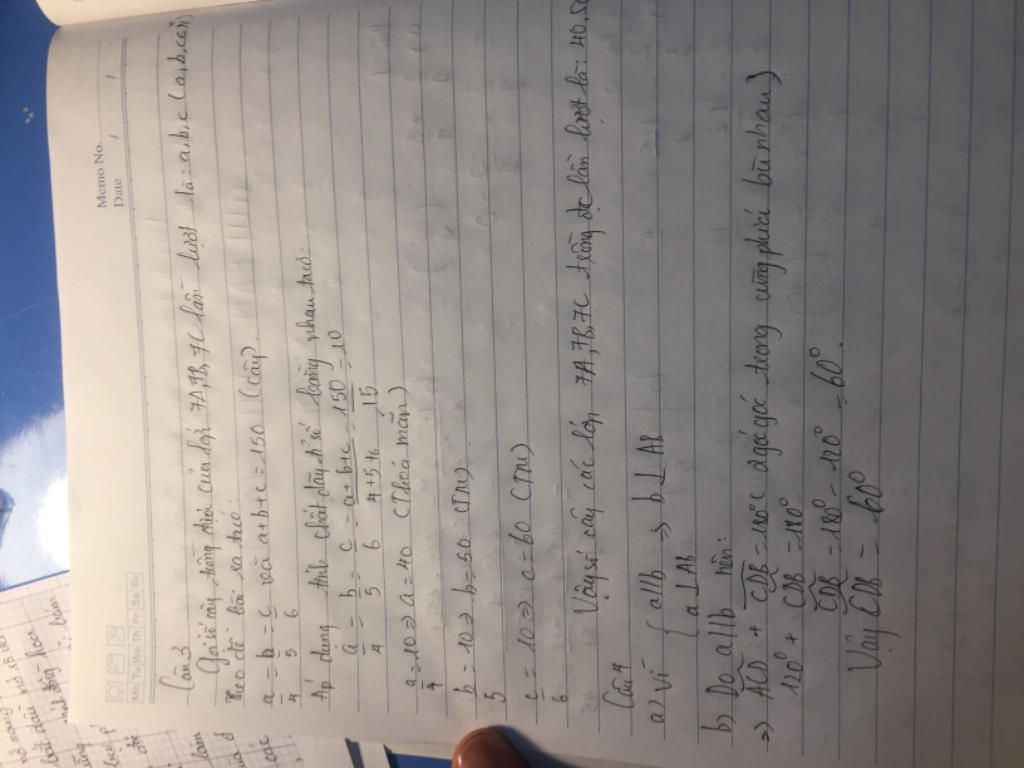 Memo No.
Date / /
Mo Tu We Th Fr Sa Su
Câu 3
Gọi số cây trồng được của lớp 7A, 7B, 7C lần lượt là: a, b, c (a, b, c ∈
Theo đề bài ta có:
a/4 = b/5 = c/6 và a+b+c = 150 (cây)
Áp dụng tính chất dãy tỉ số bằng nhau ta có:
a/4 = b/5 = c/6 = a+b+c/4+5+6 = 150/15 = 10
a/4 = 10 => a = 40 (Thoả mãn)
b/5 = 10 => b = 50 (TM)
c/6 = 10 => c = 60 (TM)
Vậy số cây các lớp 7A, 7B, 7C trồng đc lần lượt là: 40, 50
Câu 4
a) Vì { a//b => b ⊥ AB
a ⊥ AB
b) Do a//b nên:
=> ACD + CDB = 180° (2 góc trong cùng phía bù nhau)
120° + CDB = 180°
CDB = 180° - 120° = 60°.
Vậy CDB = 60°